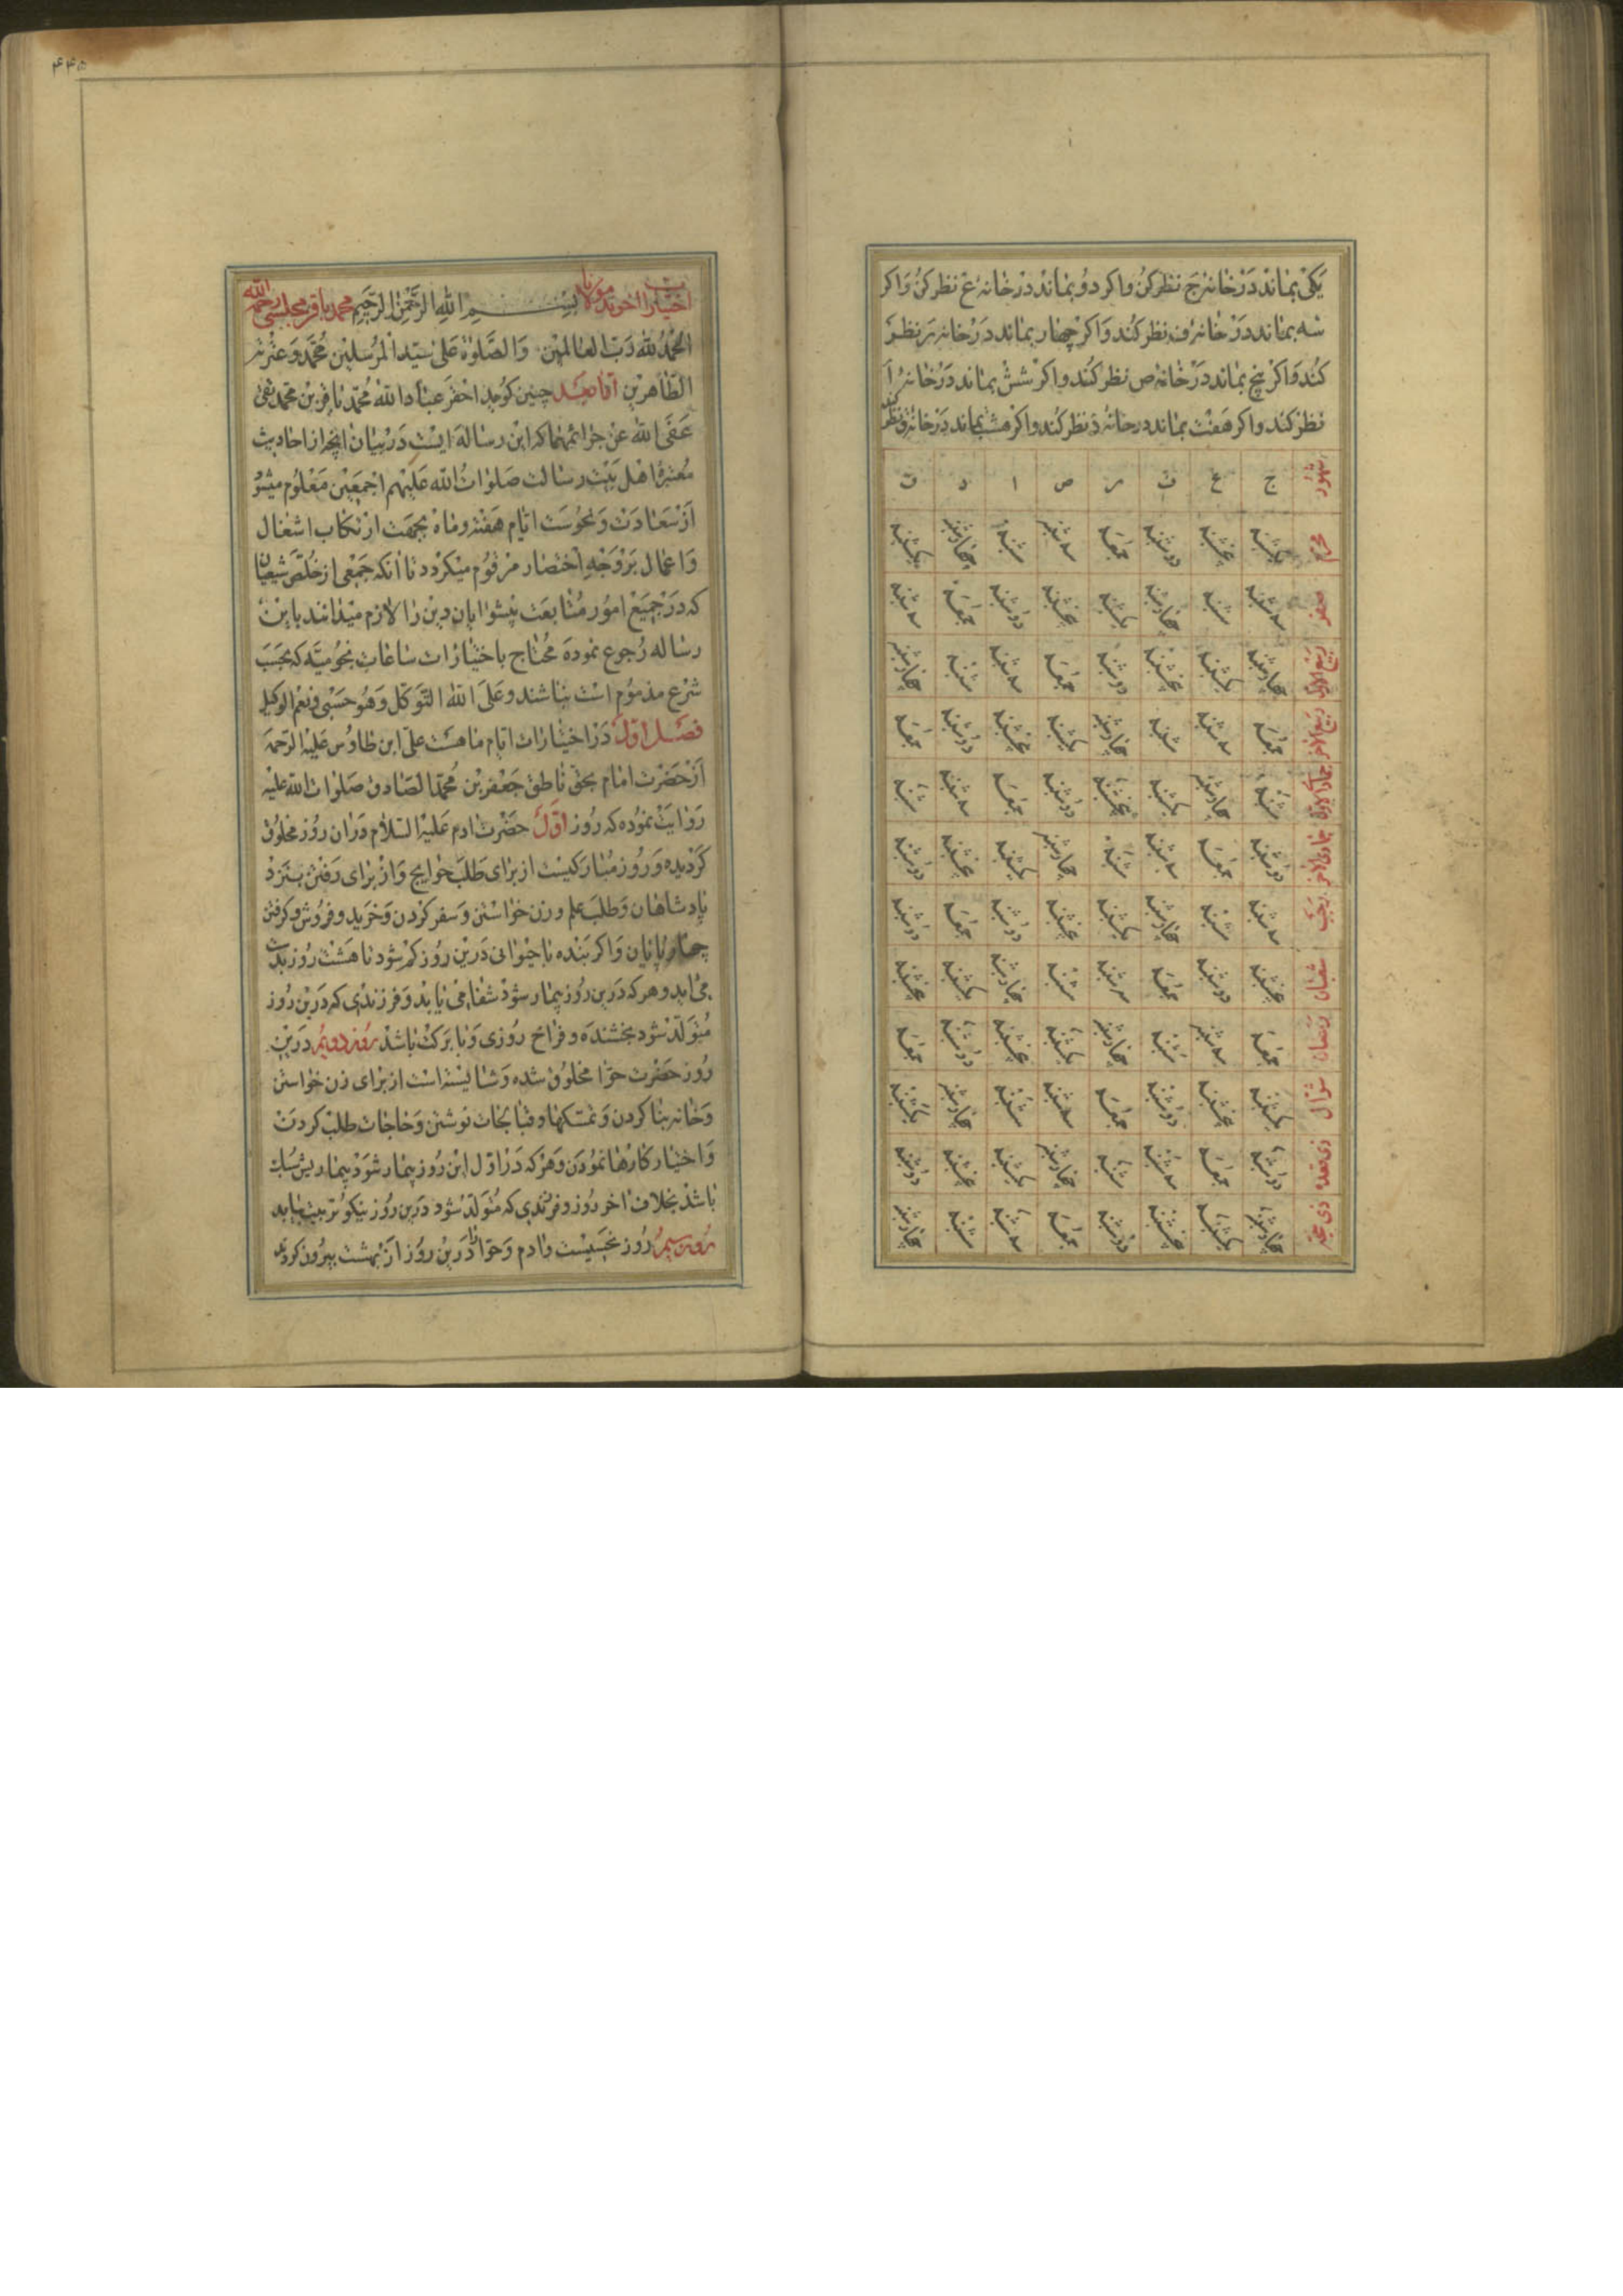 یکی بماند در خانهٔ ج نظر کن واکر دو بماند در خانهٔ ع نظر کن واکر
سه بماند در خانهٔ ف نظر کند واکر چهار بماند در خانهٔ نظر
کند واکر پنج بماند در خانهٔ ص نظر کند واکر شش بماند در خانهٔ ا
نظر کند واکر هفت بماند در خانهٔ د نظر کند واکر هشت بماند در خانهٔ ق نظر کند
شهور ج ع ص ا د
محرم یکشنبه پنجشنبه دوشنبه جمعه سه شنبه شنبه چهارشنبه یکشنبه
صفر سه شنبه شنبه چهارشنبه یکشنبه پنجشنبه دوشنبه جمعه سه شنبه
ربیع الاول چهارشنبه یکشنبه پنجشنبه دوشنبه جمعه سه شنبه شنبه چهارشنبه
ربیع الاخر جمعه سه شنبه شنبه چهارشنبه یکشنبه پنجشنبه دوشنبه جمعه
شنبه چهارشنبه یکشنبه پنجشنبه دوشنبه جمعه سه شنبه شنبه
جمادی الاخر دوشنبه جمعه سه شنبه شنبه چهارشنبه یکشنبه پنجشنبه دوشنبه
رجب سه شنبه شنبه چهارشنبه یکشنبه پنجشنبه دوشنبه جمعه دوشنبه
شعبان پنجشنبه دوشنبه جمعه سه شنبه شنبه چهارشنبه یکشنبه پنجشنبه
رمضان جمعه سه شنبه شنبه چهارشنبه یکشنبه پنجشنبه دوشنبه جمعه
شوال یکشنبه پنجشنبه دوشنبه جمعه سه شنبه شنبه چهارشنبه یکشنبه
ذی قعده دوشنبه جمعه سه شنبه شنبه چهارشنبه یکشنبه پنجشنبه دوشنبه
ذی حجه چهارشنبه یکشنبه پنجشنبه دوشنبه جمعه سه شنبه شنبه چهارشنبه
۴۴۵
اختیارات اخوند مولانا بسم الله الرحمن الرحیم محمد باقر مجلسی رحمه الله
الحمد لله رب العالمین والصلوة علی سید المرسلین محمد وعترته
الطاهرین اما بعد چنین کوید احقر عباد الله محمد باقر بن محمد تقی
عفی الله عن جرائمهما که این رساله ایست در بیان انچه از احادیث
معتبرهٔ اهل بیت رسالت صلوات الله علیهم اجمعین معلوم میشود
از سعادت ونحوست ایام هفته وماه بجهت ارتکاب اشغال
واعمال بر وجه اختصار مرقوم میکردد تا انکه جمعی از خلص شیعیان
که در جمیع امور متابعت پیشوایان دین را لازم میدانند باین
رساله رجوع نموده محتاج باختیارات ساعات نجومیه که بحسب
شرع مذموم است نباشند وعلی الله التوکل وهو حسبی ونعم الوکیل
فصل اول در اختیارات ایام ماهست علی ابن طاوس علیه الرحمه
از حضرت امام بحق ناطق جعفر بن محمد الصادق صلوات الله علیه
روایت نموده که روز اول حضرت ادم علیه السلام دران روز مخلوق
کردیده وروز مبارکیست از برای طلب حوایج واز برای رفتن بنزد
پادشاهان وطلب علم وزن خواستن وسفر کردن وخرید وفروش وکرفتن
چهارپایان واکر بنده یا حیوانی درین روز کم شود تا هشت روز بدست
می اید وهر که درین روز بیمار شود شفا می یابد وفرزندی که درین روز
متولد شود بخشنده وفراخ روزی وبا برکت باشد روز دویم درین
روز حضرت حوا مخلوق شده وشایسته است از برای زن خواستن
وخانه بنا کردن وتمسکها وقبالجات نوشتن وحاجات طلب کردن
واختیار کارها نمودن وهر که در اول این روز بیمار شود بیماریش سبک
باشد بخلاف اخر روز وفرزندی که متولد شود درین روز نیکو تربیت یابد
روز سیم روز نحسیست وادم وحوا را درین روز از بهشت بیرون کردند